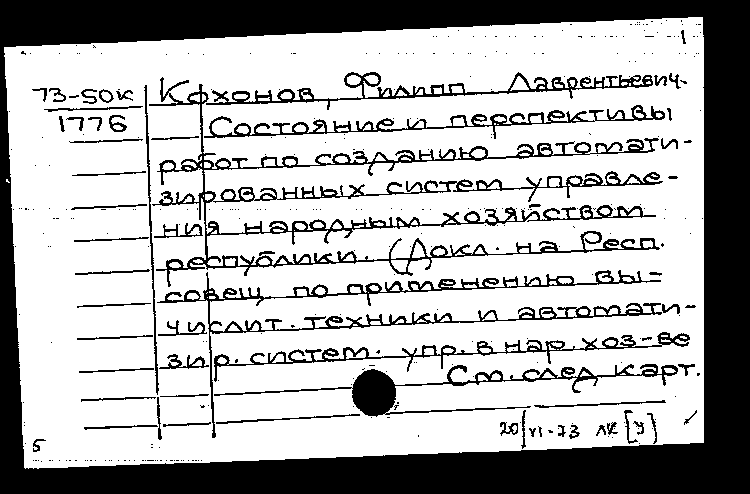 1
73-50к Кохонов, Филипп Лаврентьевич.
1776 Состояние и перспективы
работ по созданию автомати-
зированных систем управле-
ния народным хозяйством
республики. (Докл. на Респ.
совещ. по применению вы-
числит. техники и автомати-
зир. систем. упр. в нар. хоз-ве
См. след карт.
5 20/VI-73 лк [у]